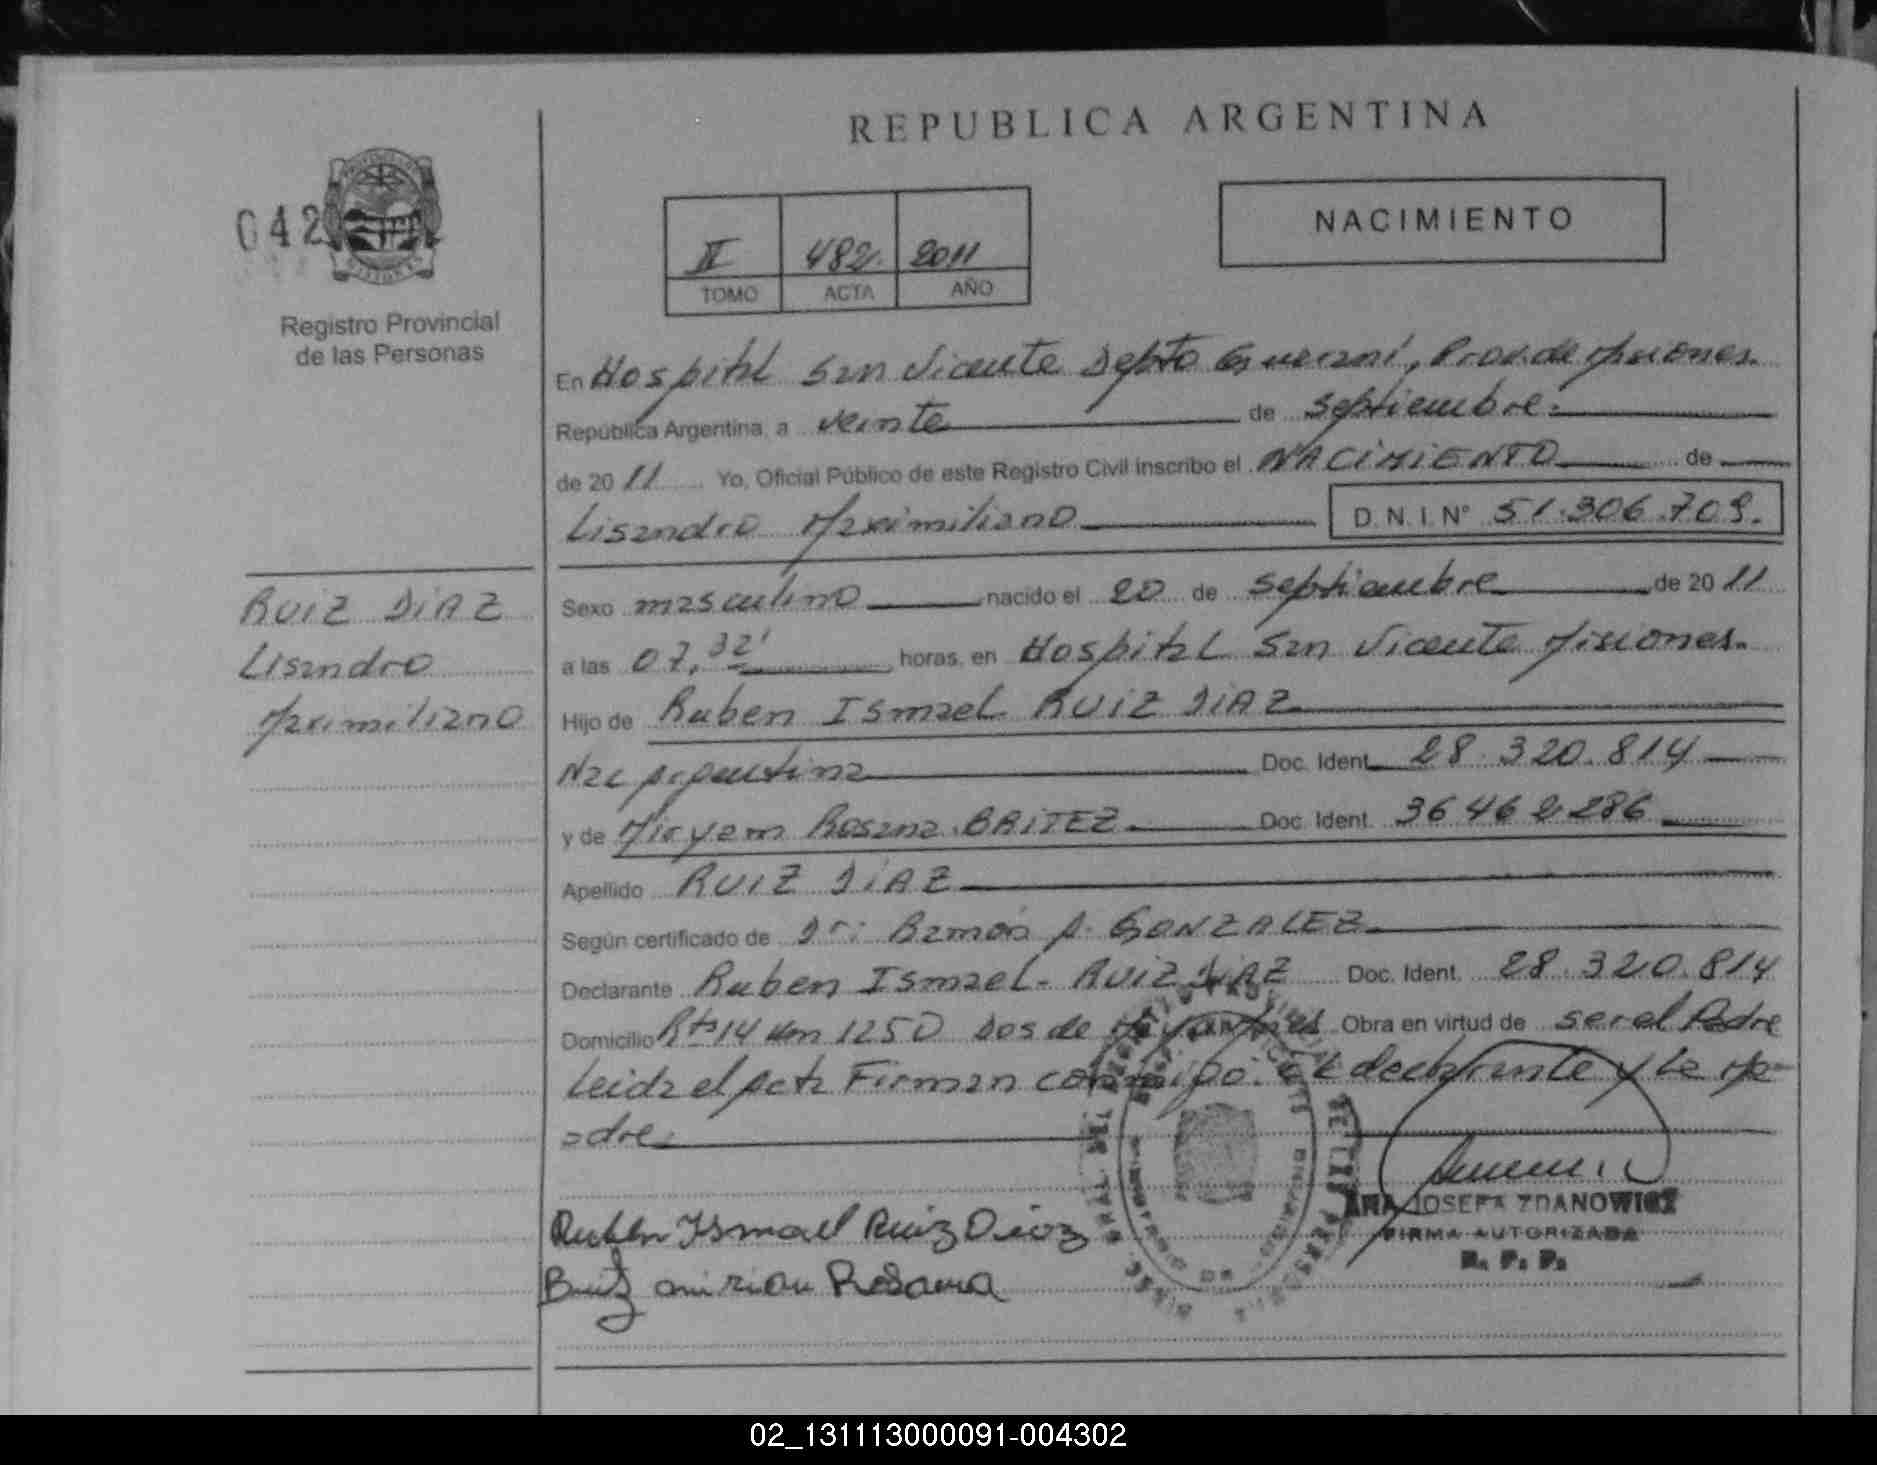 REPUBLICA ARGENTINA
042
Registro Provincial
de las Personas
II 482. 2011
TOMO ACTA AÑO
NACIMIENTO
En Hospital San Vicente Depto Guarani, Prov. de Misiones.
República Argentina, a veinte de septiembre.
de 2011 Yo, Oficial Público de este Registro Civil inscribo el NACIMIENTO de
Lisandro Maximiliano D.N.I.N° 51.306.709.
RUIZ DIAZ
Lisandro
Maximiliano
Sexo masculino nacido el 20 de septiembre de 2011
a las 07,32' horas, en Hospital San Vicente Misiones.
Hijo de Ruben Ismael RUIZ DIAZ
Nac Argentina Doc. Ident. 28.320.814
y de Miryam Rosana BRITEZ Doc. Ident. 36 462 286
Apellido RUIZ DIAZ
Según certificado de Dr: Ramón A. GONZALEZ
Declarante Ruben Ismael - RUIZ DIAZ Doc. Ident. 28.320.814
Domicilio Rta 14 Km 1250 Dos de Mayo Obra en virtud de ser el Padre
Leida el Acta Firman conmigo. El declarante y la Ma-
adre.
Ruben Ismael Ruiz Diaz
Miriam Rosana
ANA JOSEFA ZDANOWICZ
FIRMA AUTORIZADA
R. P. P.
02_131113000091-004302